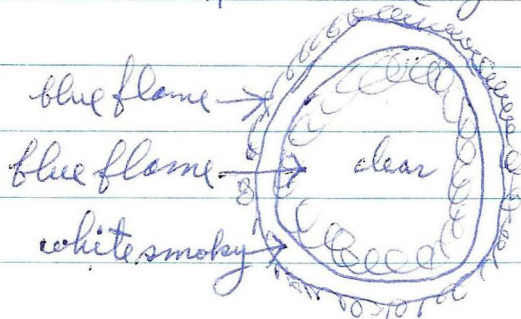 blue flame
blue flame
clear
white smoky